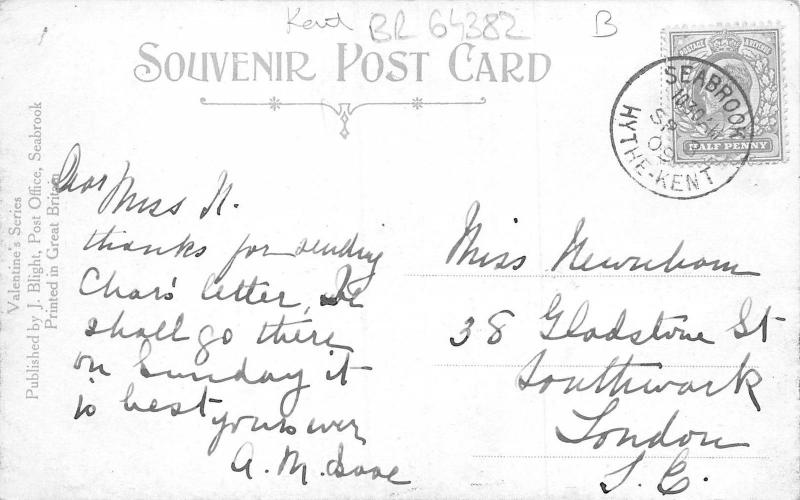 Kent BR 64382 B
SOUVENIR POST CARD
SEABROOK
HYTHE-KENT
SP
09
HALF PENNY
POSTAGE & REVENUE
Valentine's Series
Published by J. Blight, Post Office, Seabrook
Printed in Great Britain
Dear Miss N.
thanks for sending
Char's letter,
shall go there
on Sunday it
is best yours ever
A. M.
Miss Newnham
38 Gladstone St
Southwark
London
S. E.